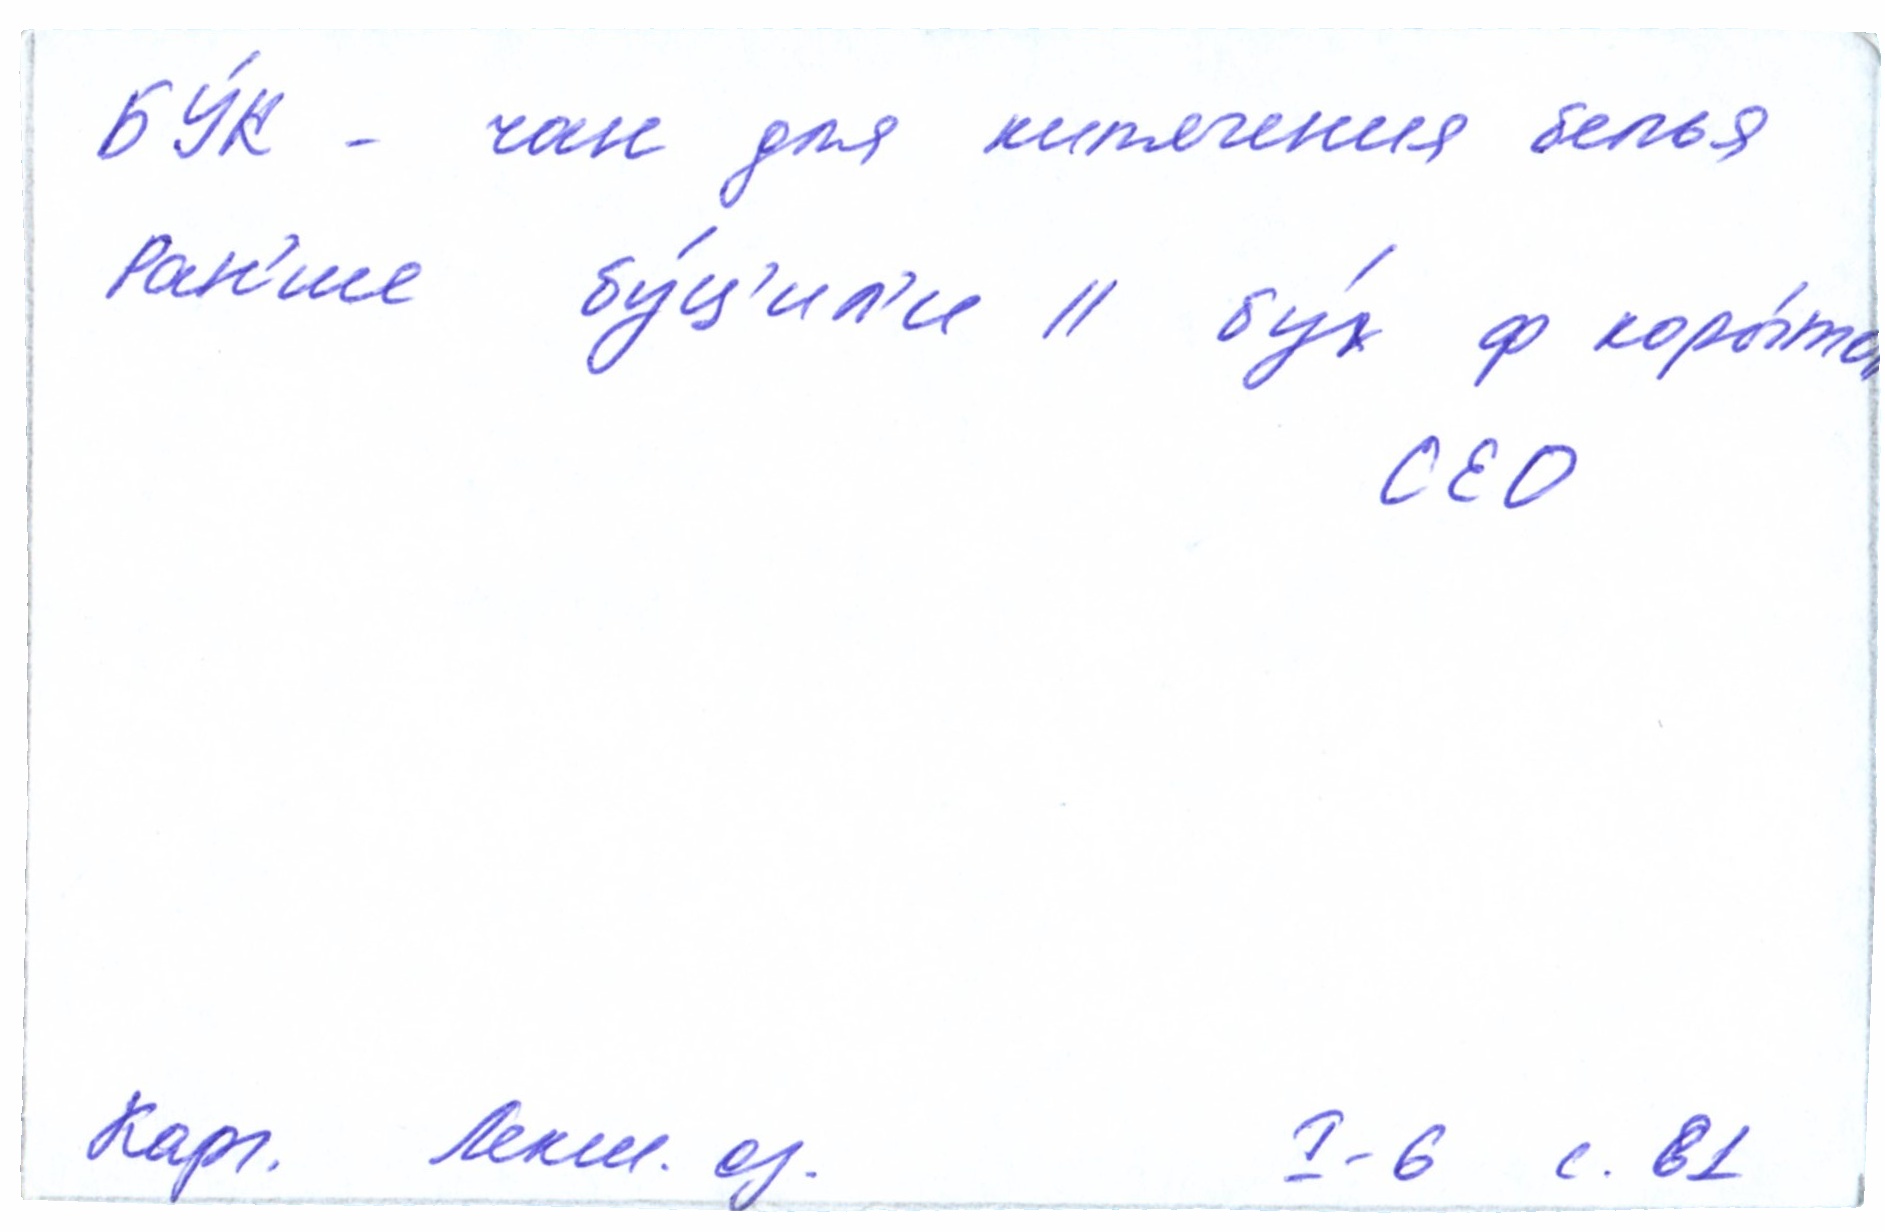 БУ́К - чан для кипячения белья
Ран'ше бу́ц'ил'и || бу́х ф коры́то,
СЕО
Карг. Лекш. оз. I-6 с. 81